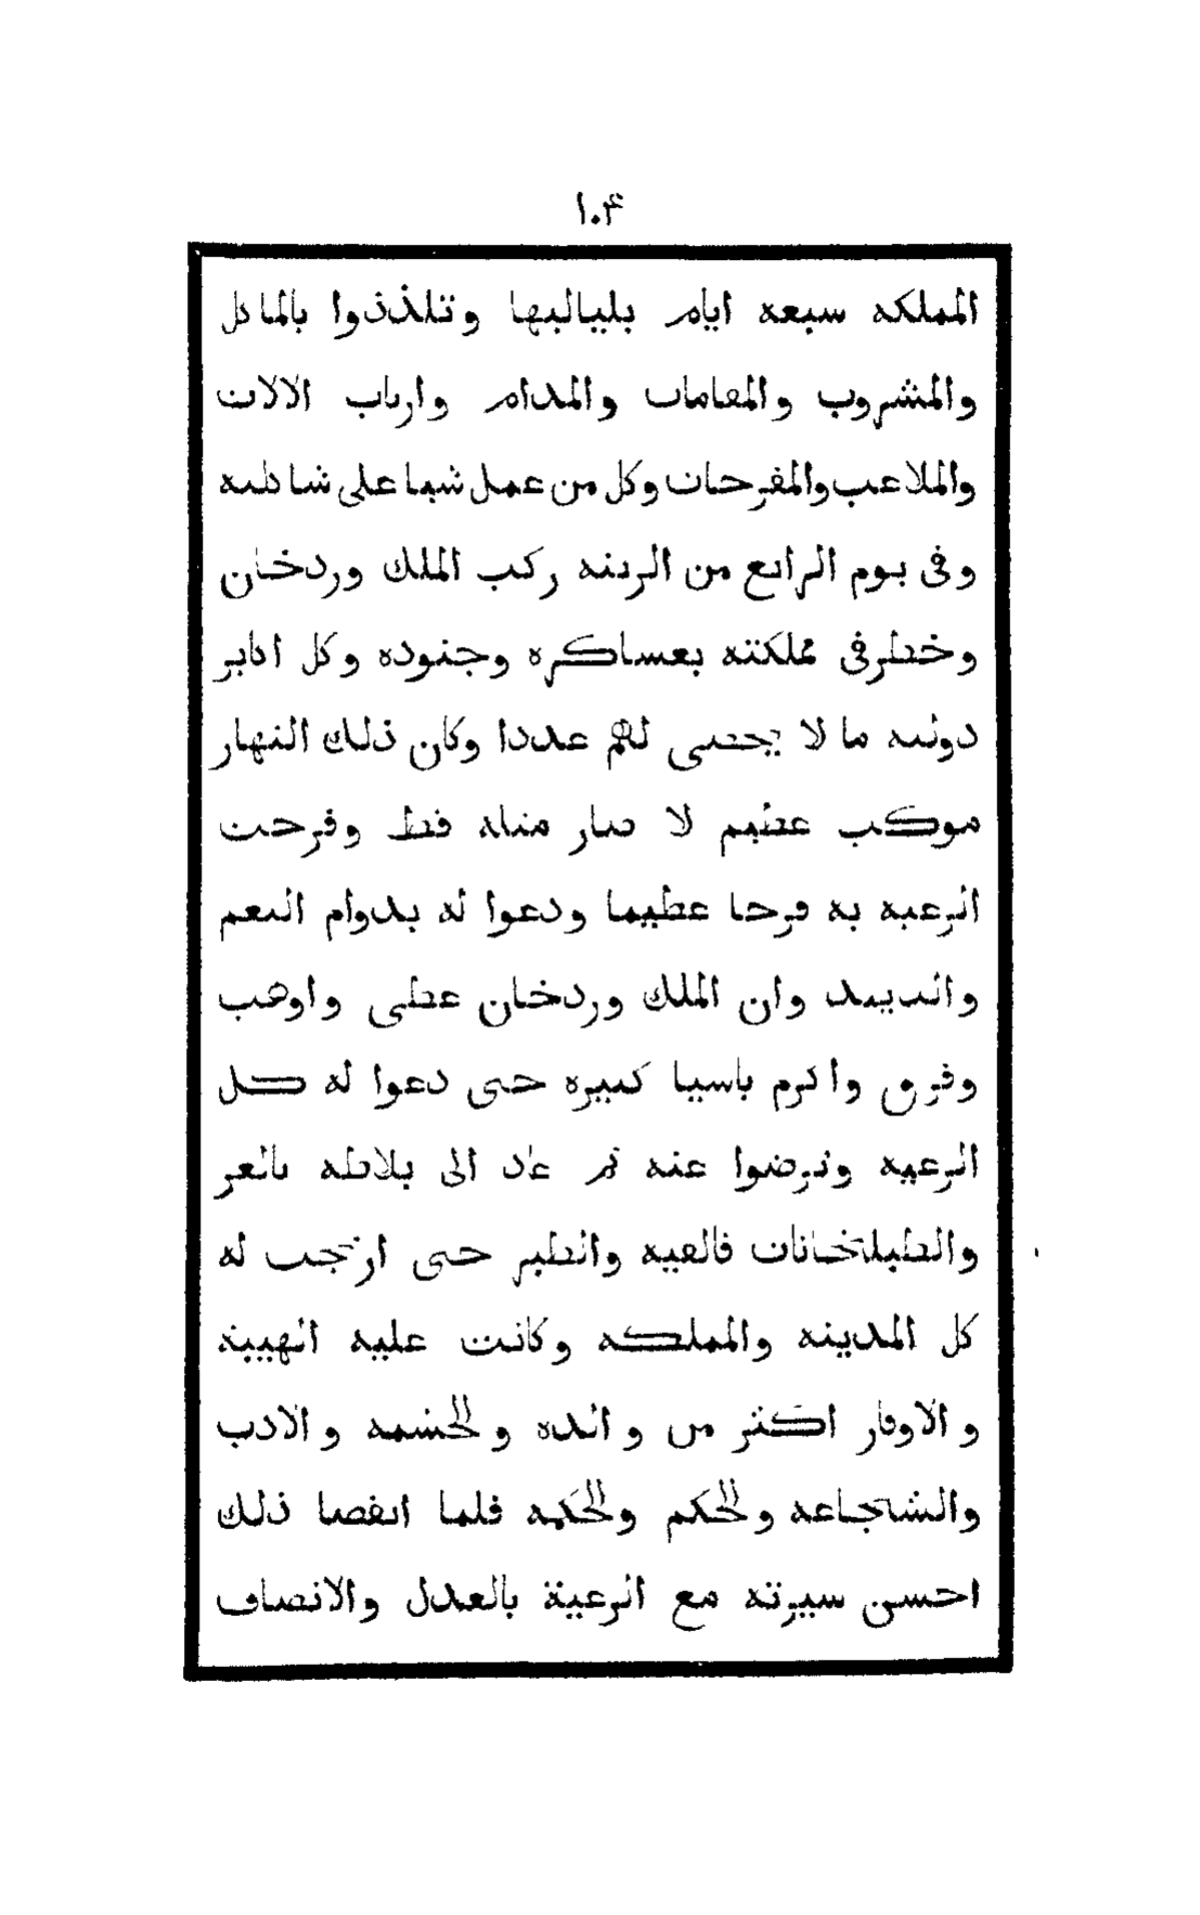 ١٠۴
المملكه سبعه ايام بلياليها وتلذذوا بالماكل
والمشروب والمقامات والمدام وارباب الالات
والملاعب والمفرحات وكل من عمل شيا على شاكلته
وفى يوم الرابع من الزينه ركب الملك وردخان
وخطر فى مملكته بعساكره وجنوده وكل اكابر
دولته ما لا يحصى لهم عددا وكان ذلك النهار
موكب عظيم لا صار مثله قط وفرحت
الرعيه به فرحا عظيما ودعوا له بدوام النعم
والتاييد وان الملك وردخان عطى واوهب
وفرق واكرم باسيا كبيره حتى دعوا له كل
الرعيه وترضوا عنه ثم عاد الى بلاطه بالعز
والطبلخانات فالعيه والطير حتى ارتجت له
كل المدينه والمملكه وكانت عليه الهيبة
والاوقار اكثر من والده والحشمه والادب
والشجاعه والحكم والحكمه فلما انفصا ذلك
احسن سيرته مع الرعية بالعدل والانصاف